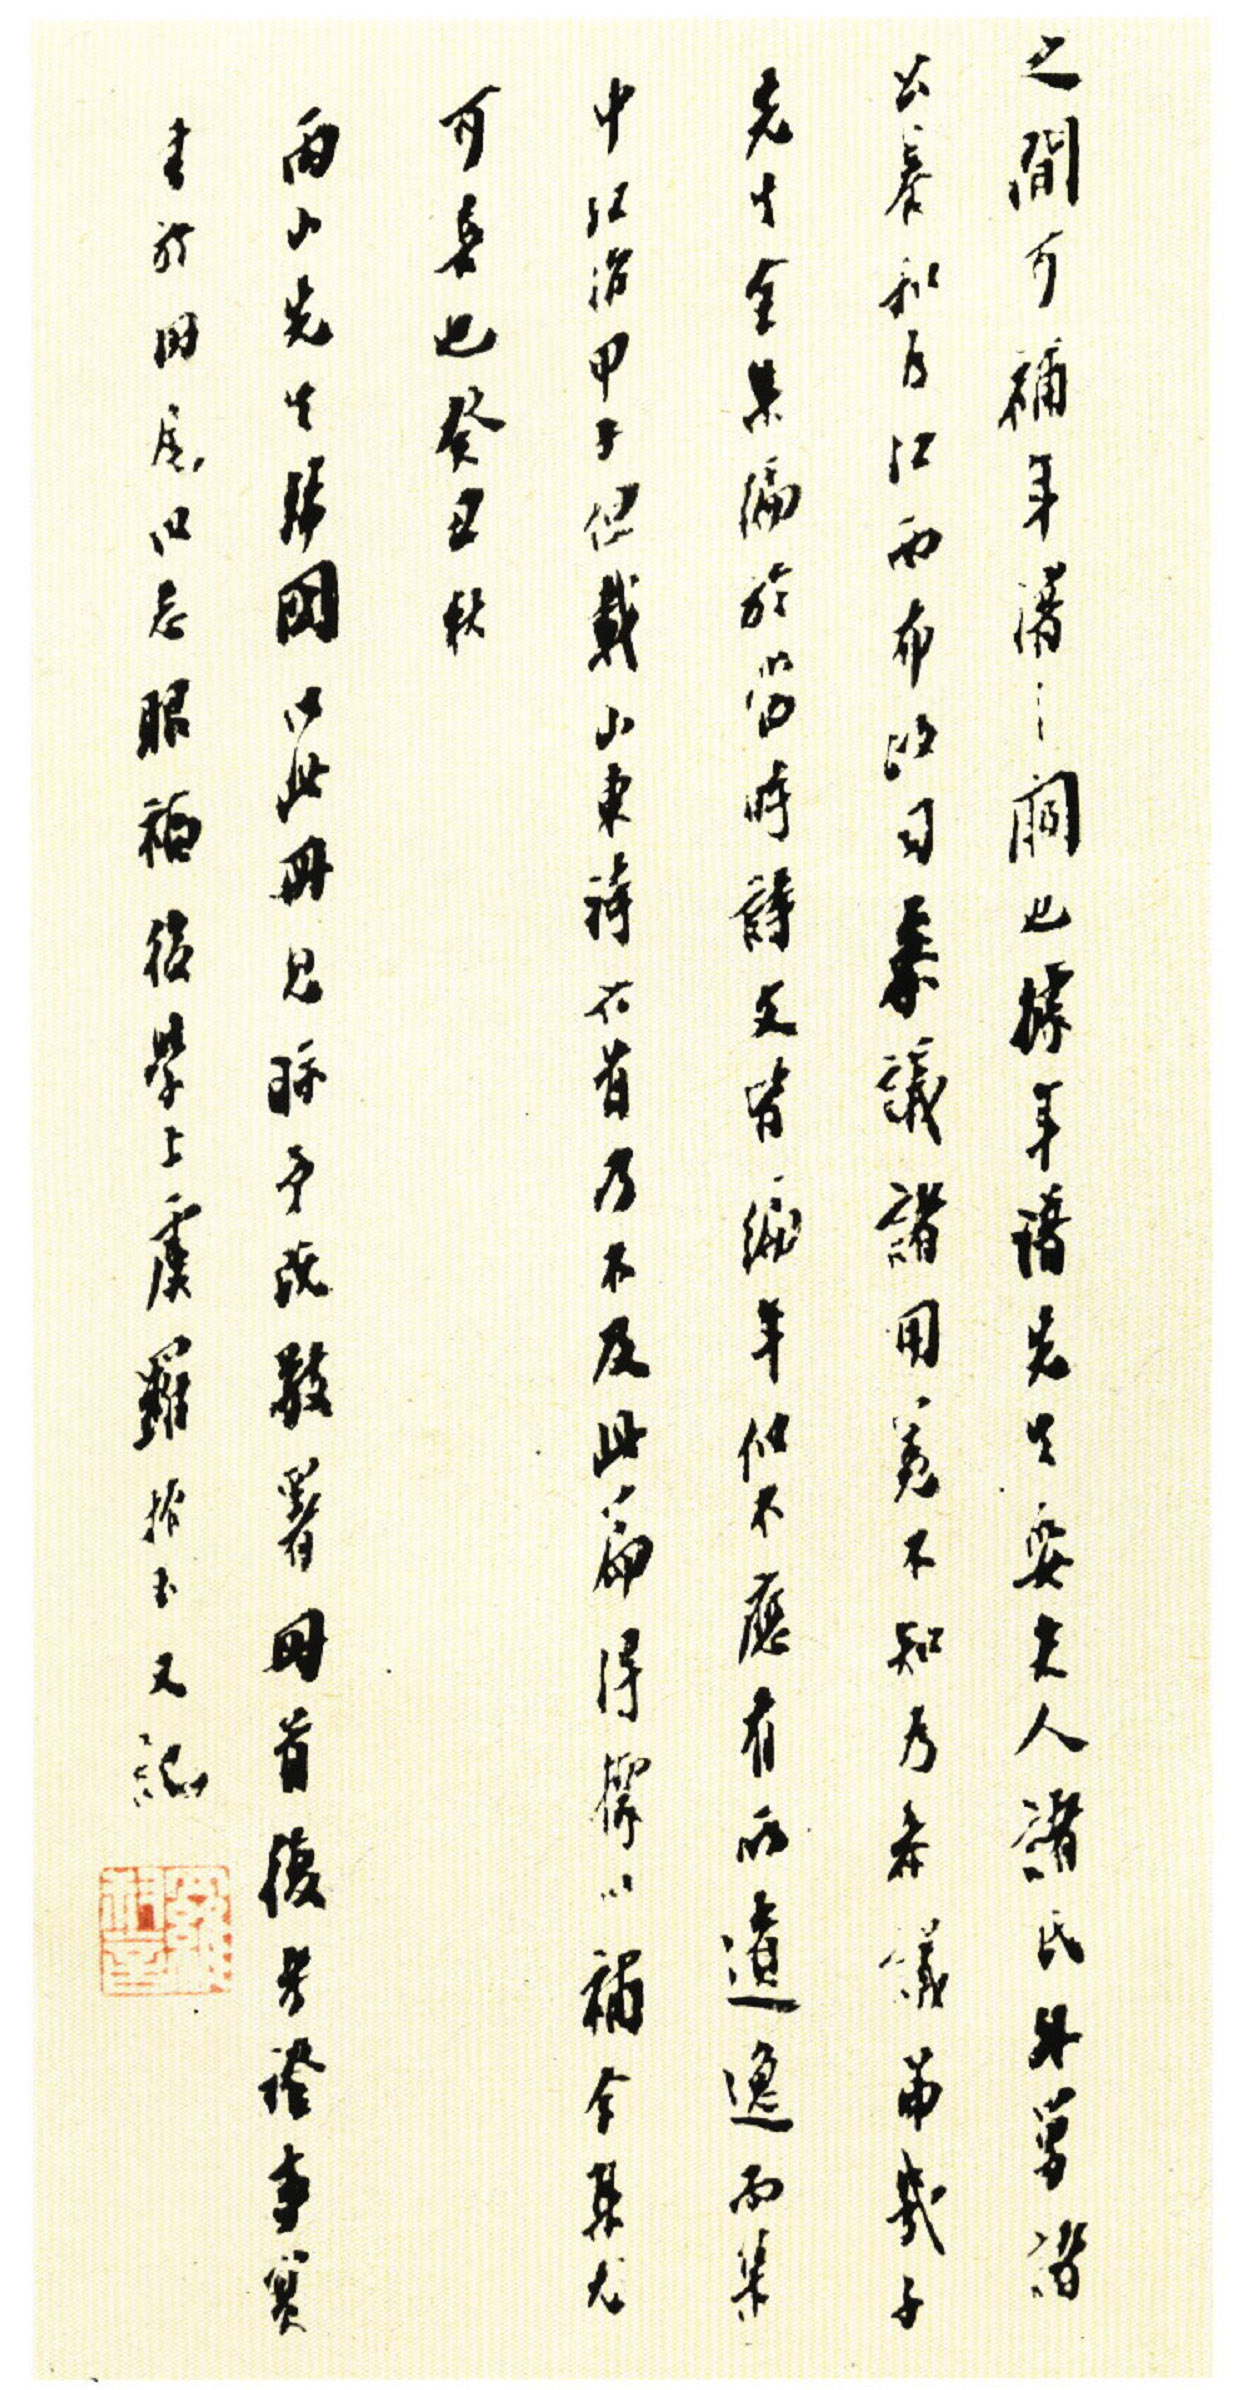 之間可補年譜之闕也據年譜先生娶夫人諸氏外舅諸
公養和為江西布政司參議諸用冕不知為參議弟幾子
先生全集編於當時詩文皆編年似不應有所遺逸而集
中弘治甲子但載山東詩六首乃不及此篇得據以補全集尤
可喜也癸丑秋
雨山先生歸國以此冊見眎予既敬署冊首復考證事實
書於冊尾以志眼福後學上虞羅振玉又記